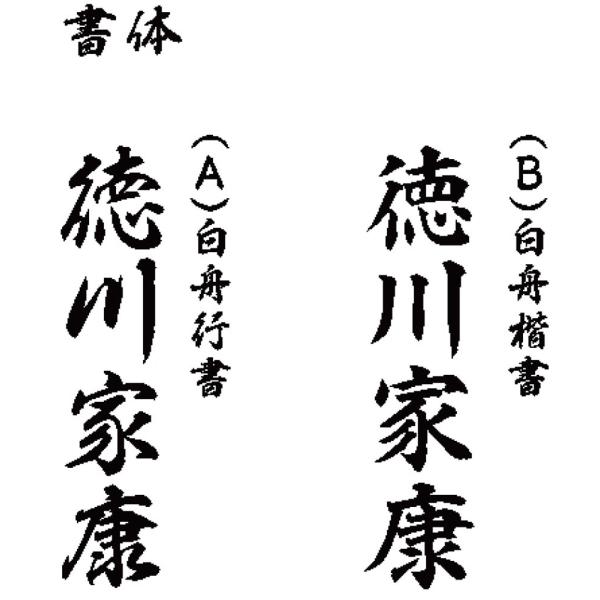 書体
(A)白舟行書
徳川家康
(B)白舟楷書
徳川家康